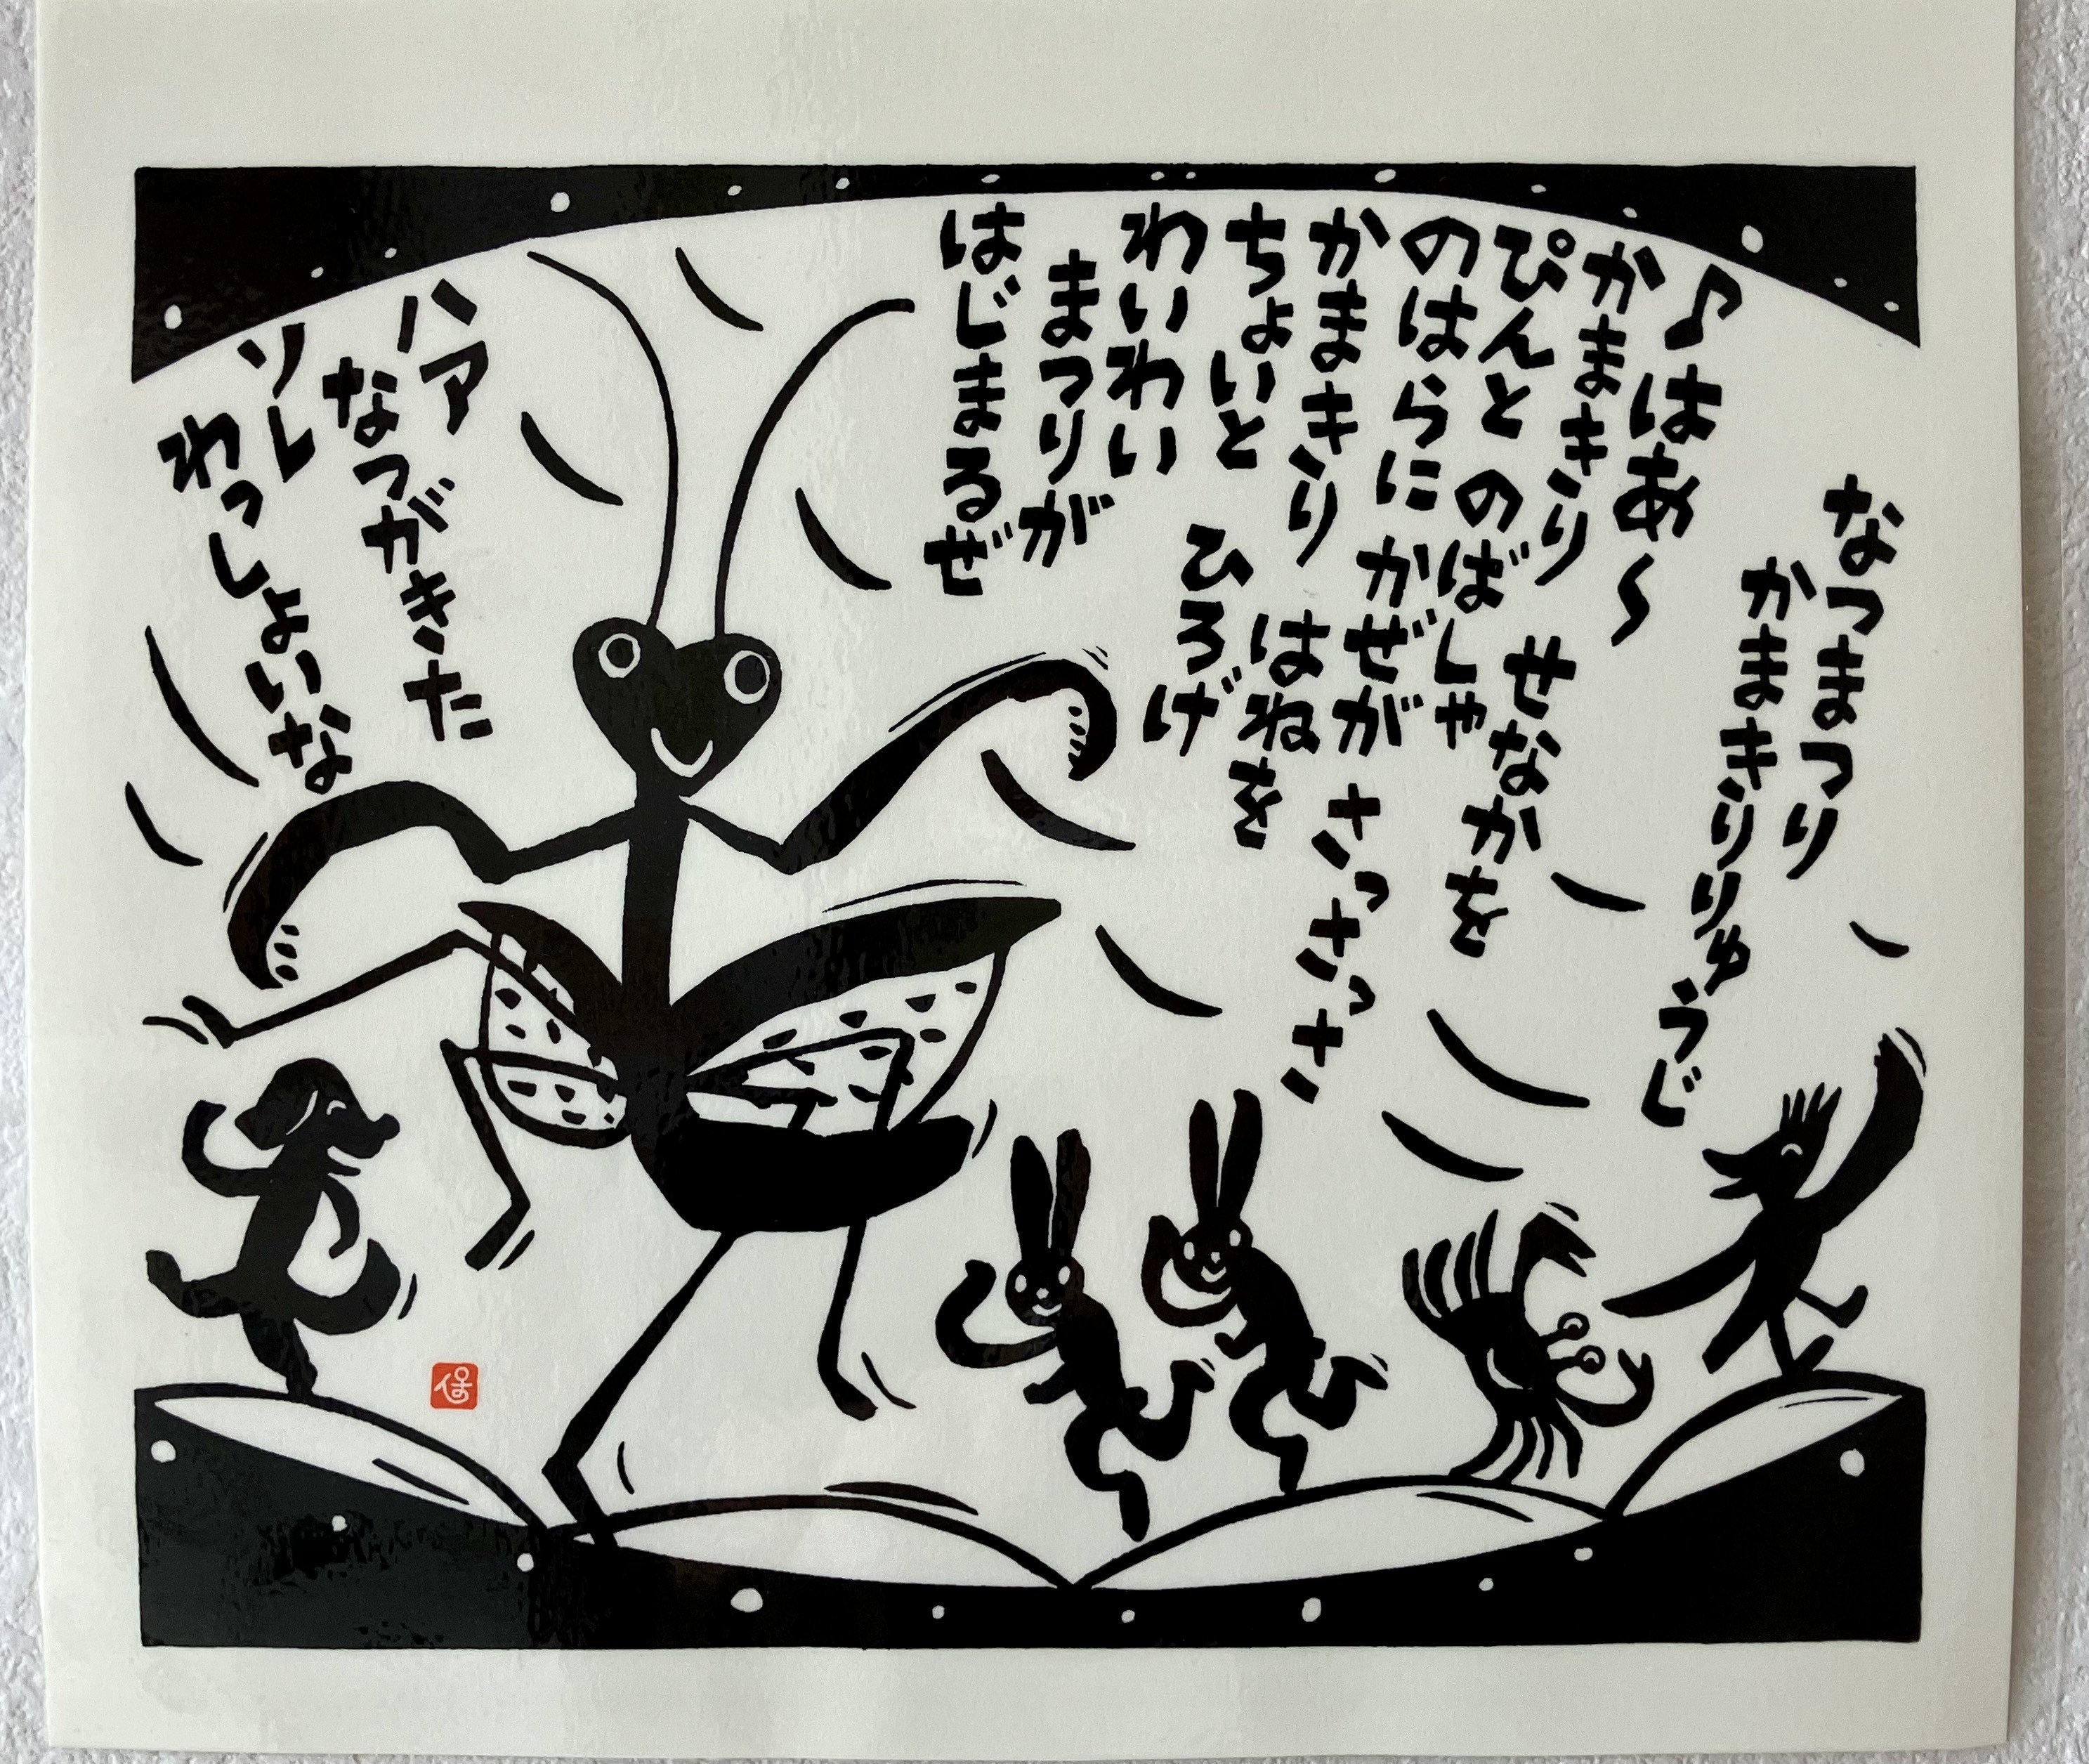 なつまつり
かまきりりゅうじ
♪はあ〜
かまきり せなかを
ぴんと のばしゃ
のはらに かぜが さっさっさ
かまきり はねを
ちょいと ひろげ
わいわい
まつりが
はじまるぜ
ハア
なつがきた
ソレ
わっしょいな
保